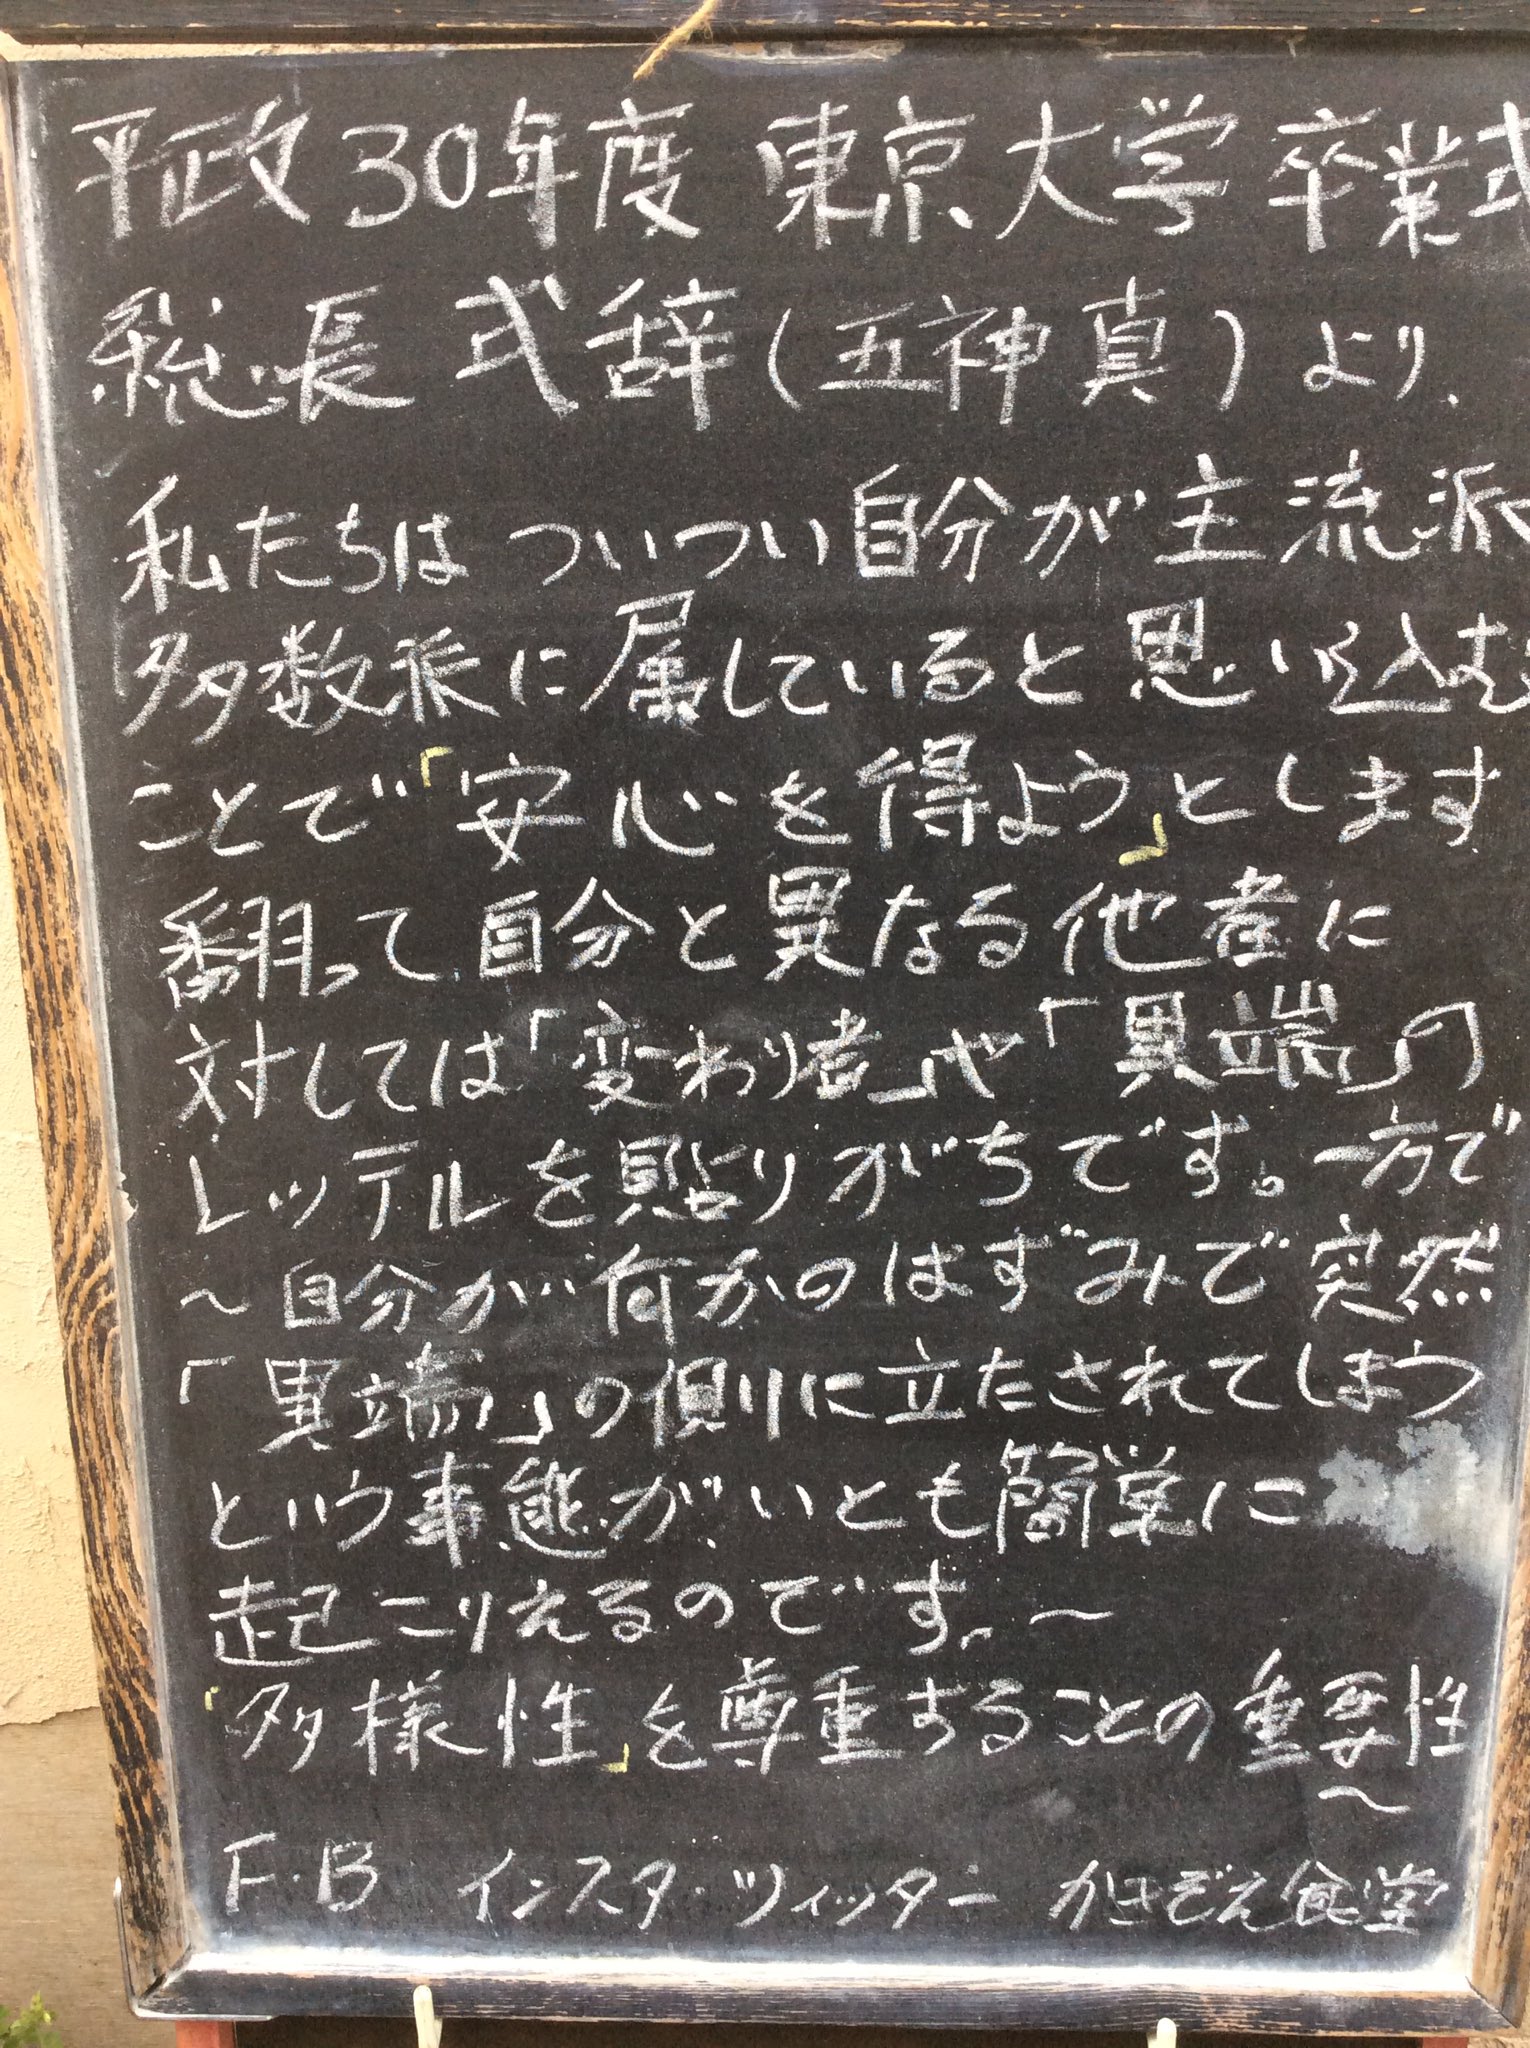 平政30年度 東京大学 卒業式
総長 式辞(五神真)より.
私たちは ついつい自分が主流派
多数派に属していると思い込む
ことで「安心を得よう」とします
翻って自分と異なる他者に
対しては「変わり者」や「異端」の
レッテルを貼りがちです。一方で
～自分が何かのはずみで突然
「異端」の側に立たされてしまう
という事態が.いとも簡単に
起こりえるのです。～
「多様性」を尊重することの重要性
～
F・B インスタ・ツィッター かさぞえ食堂